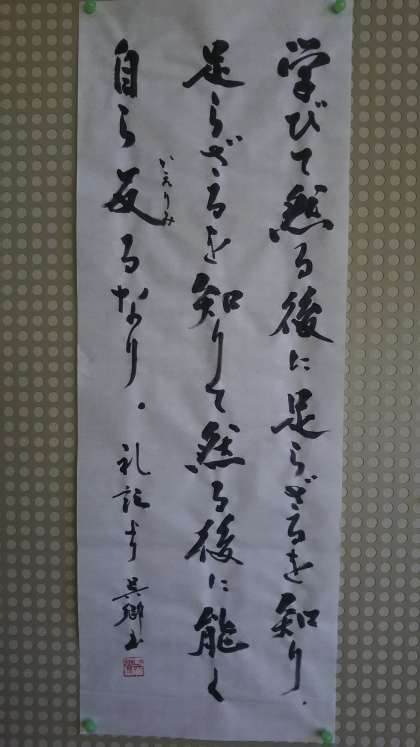 学びて然る後に足らざるを知り、
足らざるを知りて然る後に能く
自ら反るなり。 礼記より 呉郷書
かえりみ